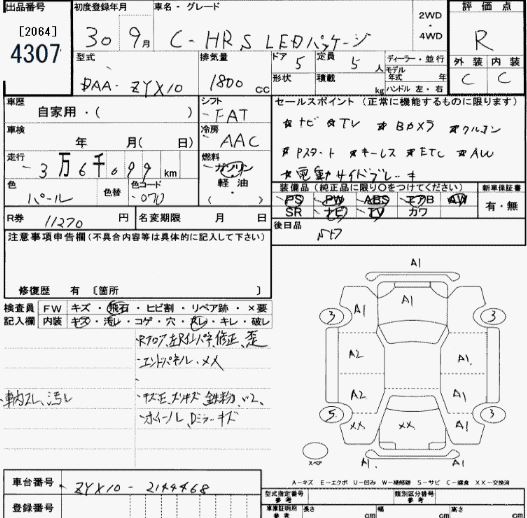 出品番号 初度登録年月 車名・グレード 2WD・4WD 評価点
[2064]
4307 30 9月 C-HR S LEDパッケージ R
型式 排気量 ドア 定員 ディーラー・並行 外装 内装
DAA-ZYX10 1800 cc 5 5人 モデル年式 年 C C
形状 積載 kg ハンドル 左・右
車歴 シフト セールスポイント (正常に機能するものに限ります)
自家用・( ) FAT
車検 冷房 ☆ナビ ☆TV ☆Bカメラ
年 月( 日) AAC ☆Pスタート ☆キーレス ☆ETC ☆AW
走行 燃料 ☆電動サイドブレーキ
3万6千099km ガソリン
軽油
( )
色 色替 色コード 装備品 (純正品に限り○をつけてください) 新車保証書
パール 070 PS PW ABS エアB AW 有・無
SR ナビ TV カワ
R券 11270円 名変期限 月 日 後日品
注意事項申告欄(不具合内容等は具体的に記入して下さい)
修復歴 有 〔箇所 〕
検査員記入欄 FW キズ・飛石・ヒビ割・リペア跡・×要
内装 キズ・汚レ・コゲ・穴・スレ・キレ・破レ
エンドパネル・XX
車内スレ、汚レ
ホイール、Dミラーキズ
A1
A1
3 3
A1
A2 A1
A2 A1
5 XX XX 3
A1 A1
スペア
A-キズ E-エクボ U-凹み W-補修跡 S-サビ C-腐食 XX-交換済
車台番号 ZYX10-2144468
登録番号
型式指定番号 参考 類別区分番号 参考
車庫証明用 参考 長さ cm 幅 cm 高さ cm